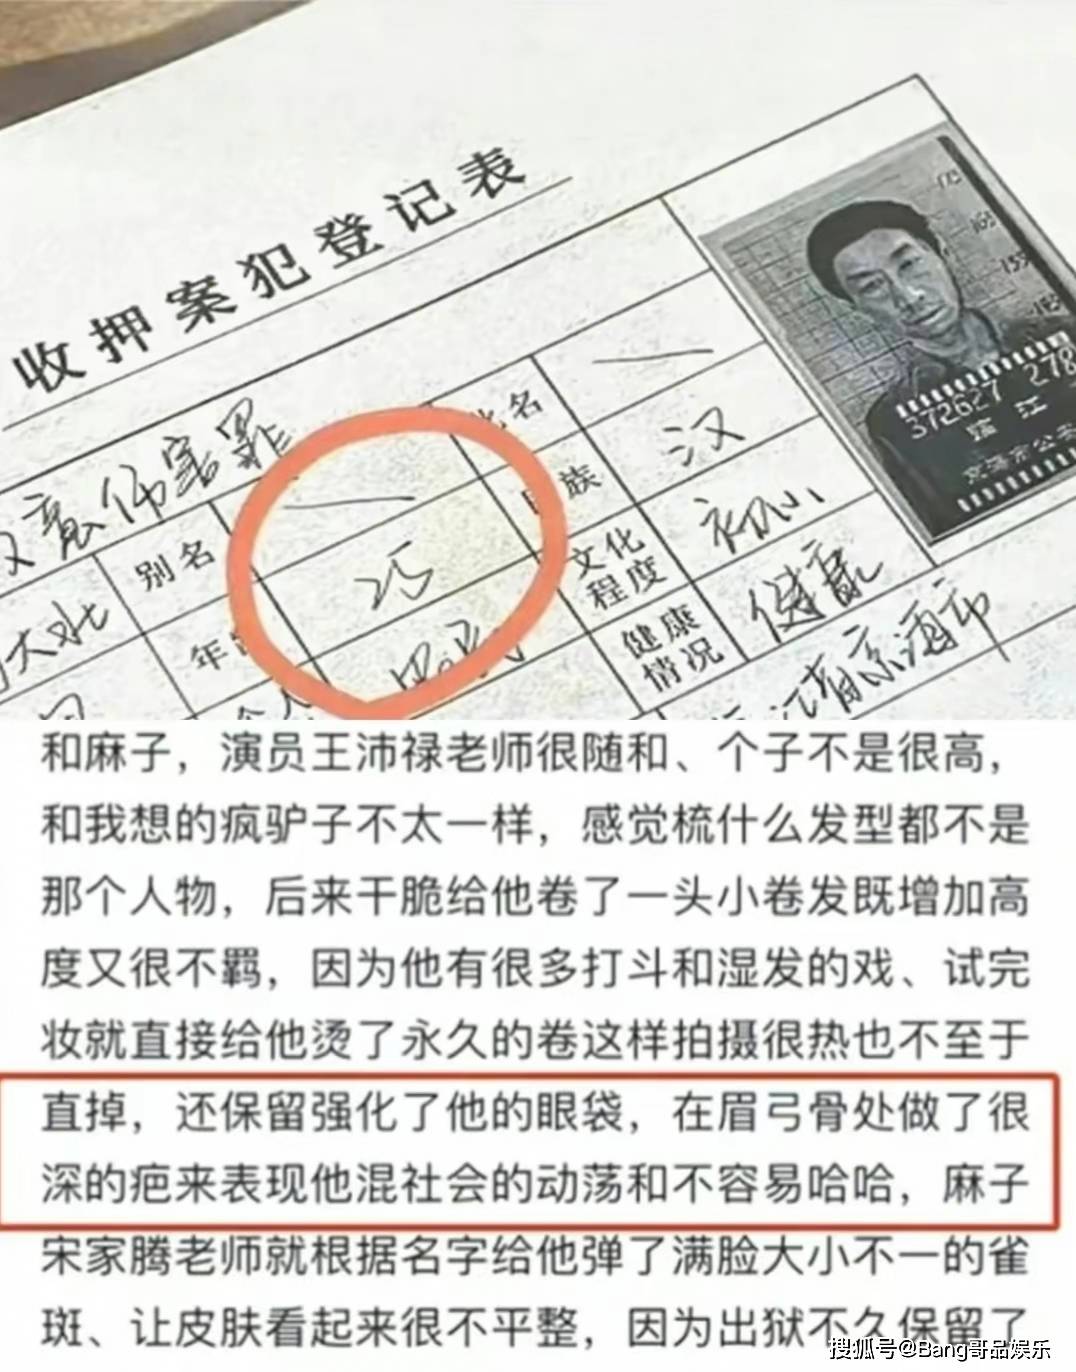 收押案犯登记表
175
165
155
145
372627 278
临江
京海市公安
故意伤害罪
别名
化名
汉
民族
25
年龄
文化
程度
初小
个人
健康
情况
健康
江省京海市
和麻子，演员王沛禄老师很随和、个子不是很高，
和我想的疯驴子不太一样，感觉梳什么发型都不是
那个人物，后来干脆给他卷了一头小卷发既增加高
度又很不羁，因为他有很多打斗和湿发的戏、试完
妆就直接给他烫了永久的卷这样拍摄很热也不至于
直掉，还保留强化了他的眼袋，在眉弓骨处做了很
深的疤来表现他混社会的动荡和不容易哈哈，麻子
宋家腾老师就根据名字给他弹了满脸大小不一的雀
斑、让皮肤看起来很不平整，因为出狱不久保留了
搜狐号@Bang哥品娱乐